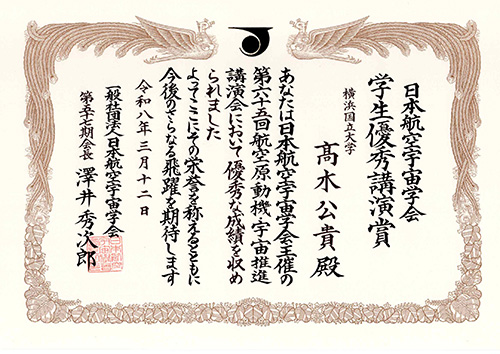 日本航空宇宙学会
学生優秀講演賞
横浜国立大学
髙木公貴殿
あなたは日本航空宇宙学会主催の
第六十五回航空原動機・宇宙推進
講演会において優秀な成績を収め
られました
よってここにその栄誉を称えるとともに
今後のさらなる飛躍を期待します
令和八年三月十二日
一般社団法人日本航空宇宙学会
第五十七期会長 澤井秀次郎